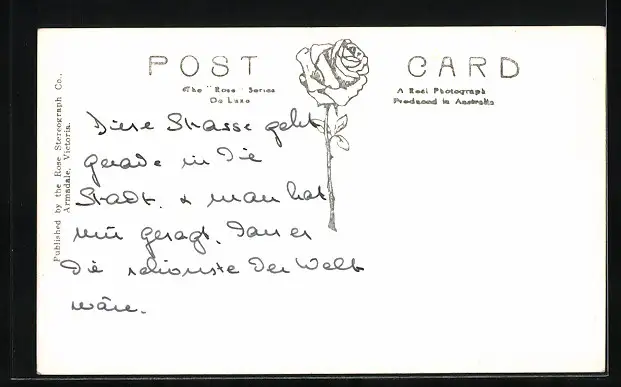 POST CARD
The "Rose" Series
De Luxe
A Real Photograph
Produced in Australia
Published by the Rose Stereograph Co.,
Armadale, Victoria.
Diese Strasse geht
gerade in die
Stadt. & man hat
mir gesagt, dass es
die schönste der Welt
wäre.